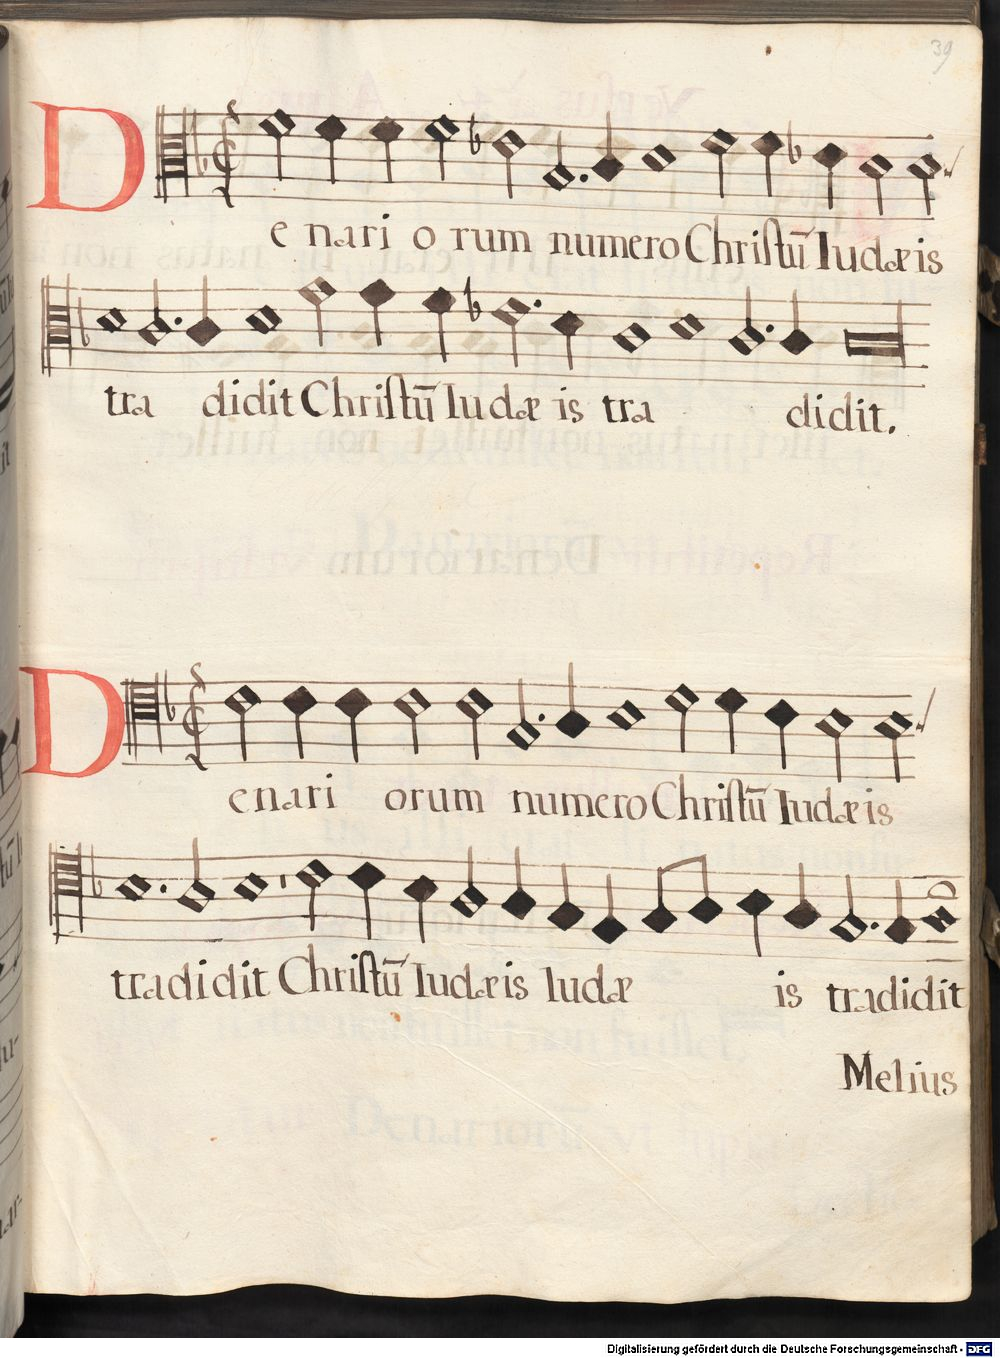 39
Denari orum numero Christū Iudæis
tra didit Christū Iudæ is tra didit.
Denari orum numero Christū Iudæis
tradidit Christū Iudæis Iudæ is tradidit
Melius
Digitalisierung gefördert durch die Deutsche Forschungsgemeinschaft - DFG